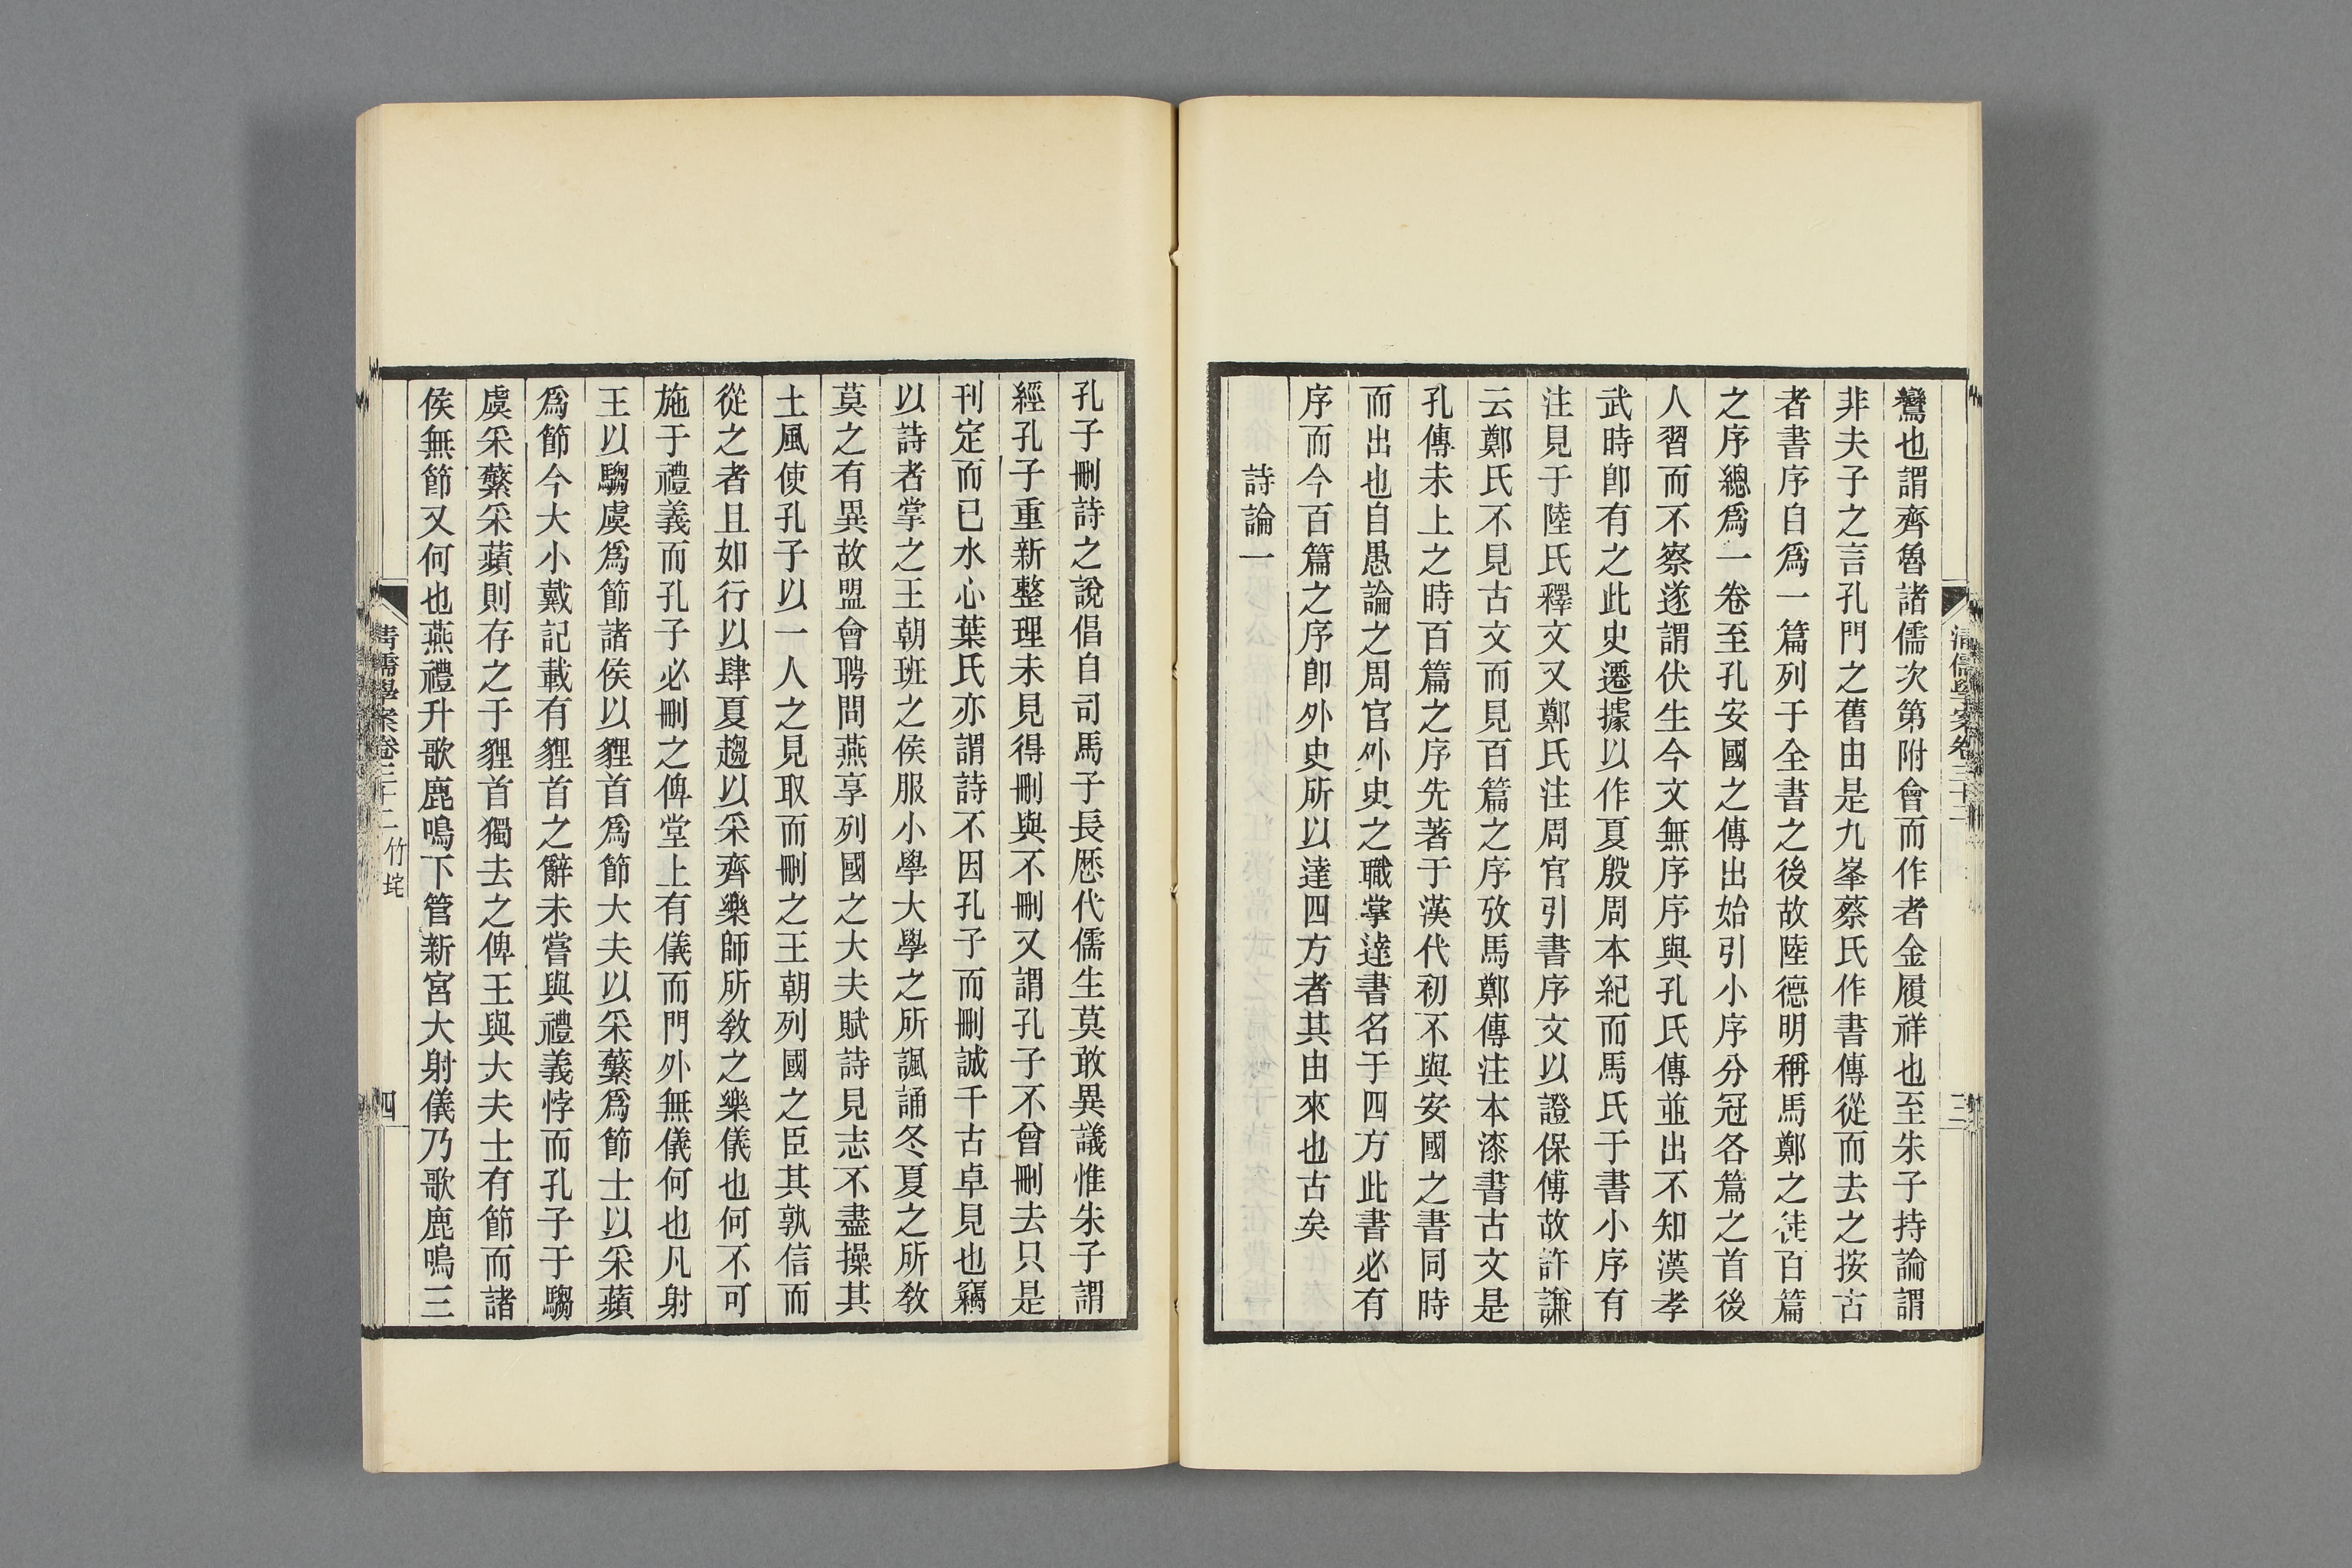 鸞也謂齊魯諸儒次第附會而作者金履祥也至朱子持論謂
非夫子之言孔門之舊由是九峯蔡氏作書傳從而去之按古
者書序自爲一篇列于全書之後故陸德明稱馬鄭之徒百篇
之序總爲一卷至孔安國之傳出始引小序分冠各篇之首後
人習而不察遂謂伏生今文無序序與孔氏傳並出不知漢孝
武時卽有之此史遷據以作夏殷周本紀而馬氏于書小序有
注見于陸氏釋文又鄭氏注周官引書序文以證保傅故許謙
云鄭氏不見古文而見百篇之序攷馬鄭傳注本漆書古文是
孔傳未上之時百篇之序先著于漢代初不與安國之書同時
而出也自愚論之周官外史之職掌達書名于四方此書必有
序而今百篇之序卽外史所以達四方者其由來也古矣
詩論一
清儒學案卷三十二
三
孔子刪詩之說倡自司馬子長歷代儒生莫敢異議惟朱子謂
經孔子重新整理未見得刪與不刪又謂孔子不曾刪去只是
刊定而已水心葉氏亦謂詩不因孔子而刪誠千古卓見也竊
以詩者掌之王朝班之侯服小學大學之所諷誦冬夏之所敎
莫之有異故盟會聘問燕享列國之大夫賦詩見志不盡操其
土風使孔子以一人之見取而刪之王朝列國之臣其孰信而
從之者且如行以肆夏趨以采齊樂師所敎之樂儀也何不可
施于禮義而孔子必刪之俾堂上有儀而門外無儀何也凡射
王以騶虞爲節諸侯以貍首爲節大夫以采蘩爲節士以采蘋
爲節今大小戴記載有貍首之辭未嘗與禮義悖而孔子于騶
虞采蘩采蘋則存之于貍首獨去之俾王與大夫士有節而諸
侯無節又何也燕禮升歌鹿鳴下管新宮大射儀乃歌鹿鳴三
清儒學案卷三十二 竹垞
四